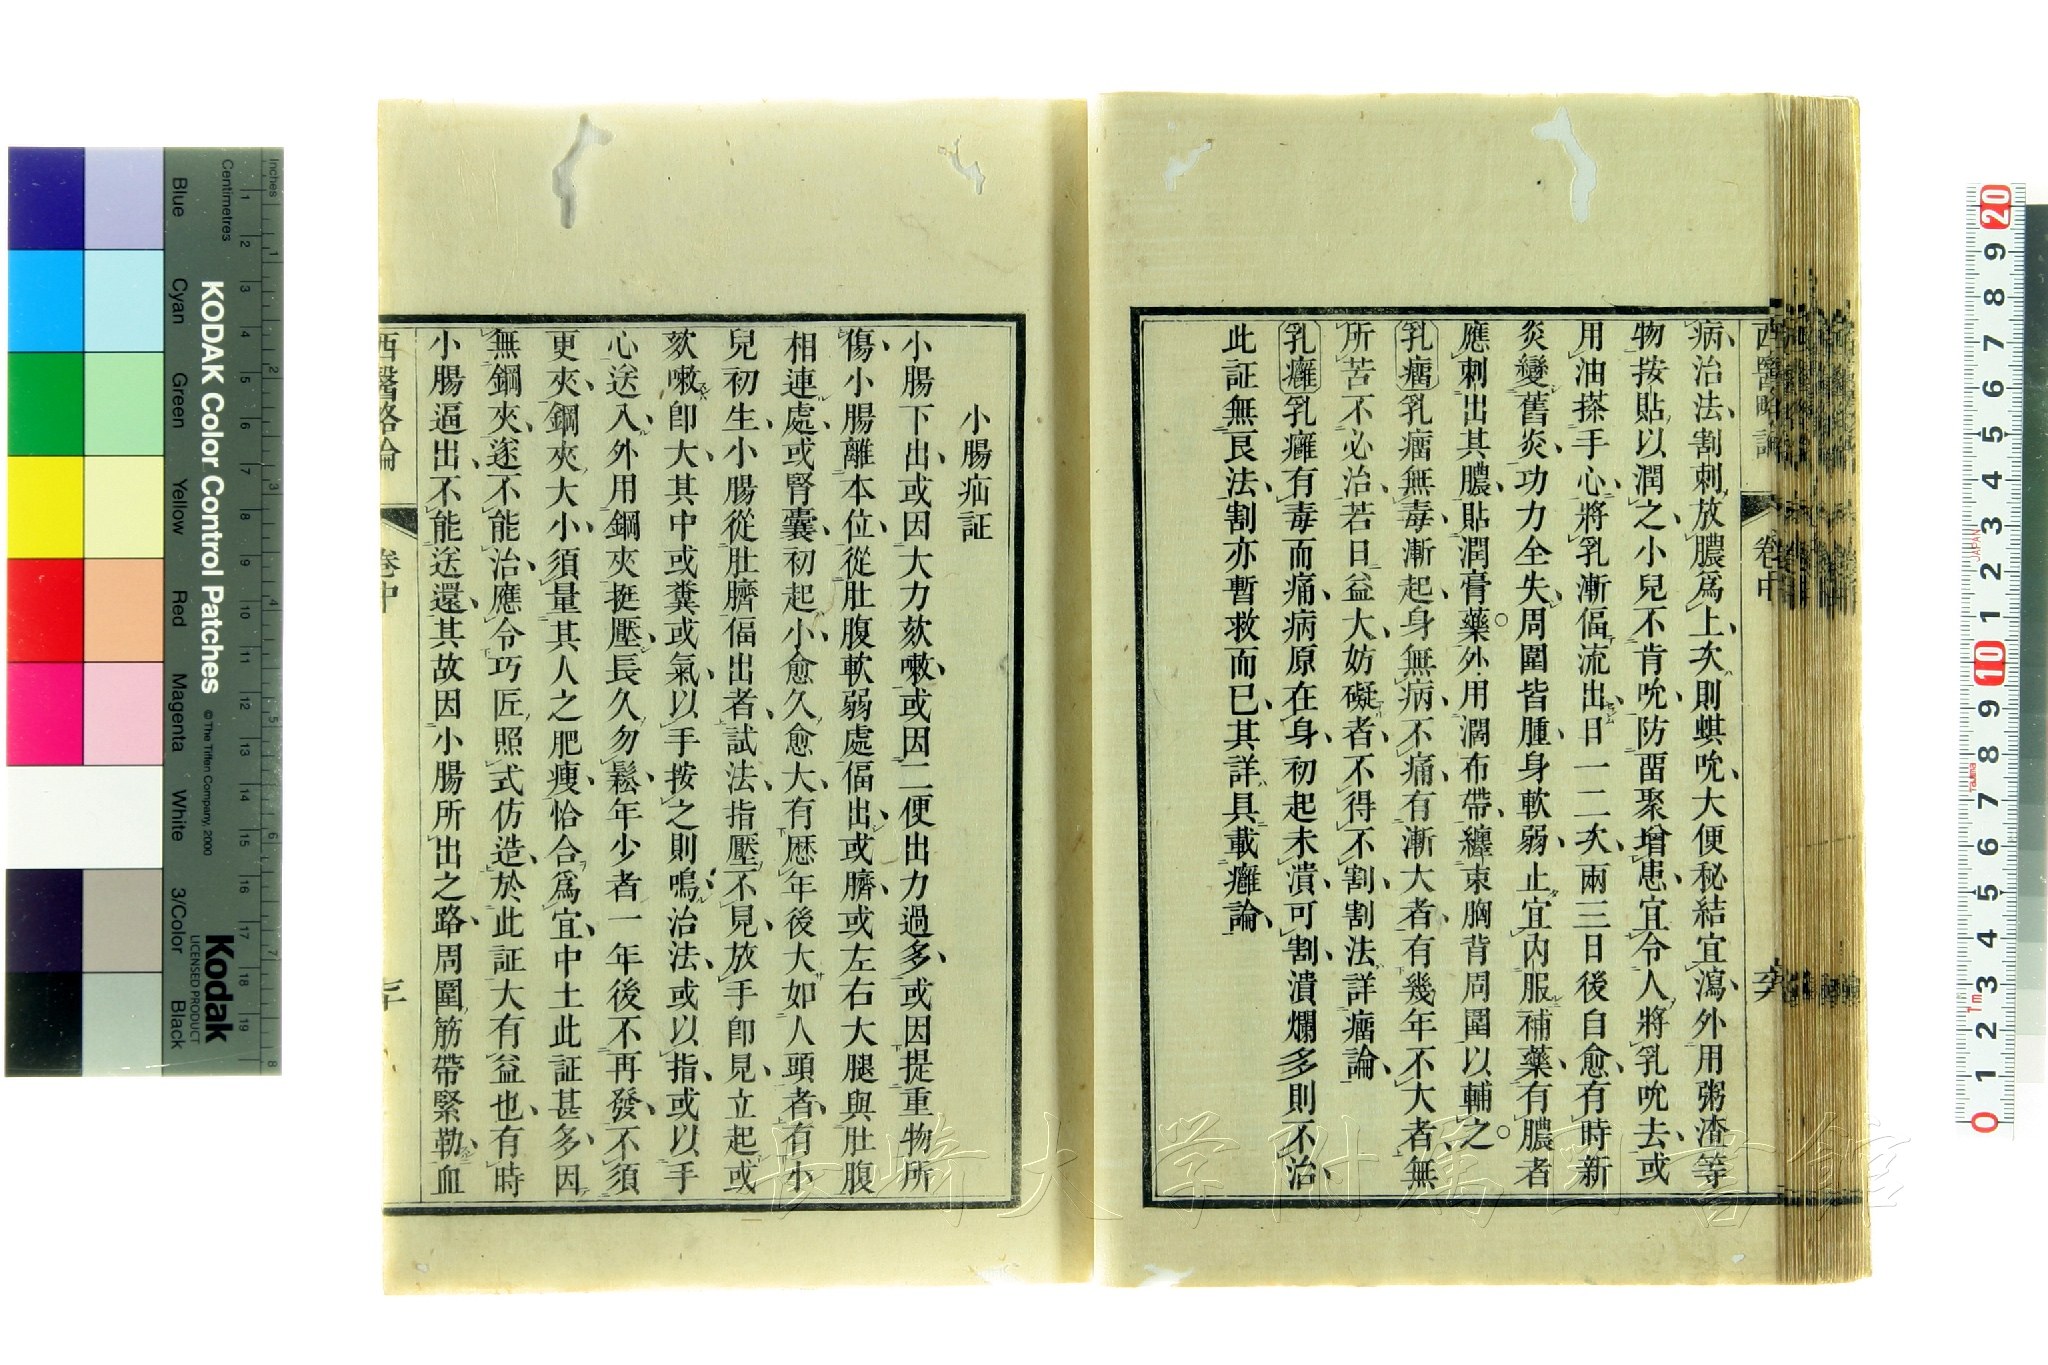 西醫略論 卷中
病、治法、割刺放膿爲上、次則蜞吮、大便秘結宜瀉、外用粥渣等
物按貼、以潤之、小兒不肯吮、防畱聚增患、宜令人將乳吮去、或
用油搽手心、將乳漸傴流出、日一二次、兩三日後自愈、有時新
炎變舊炎、功力全失、周圍皆腫、身軟弱、止宜內服補藥、有膿者
應刺出其膿、貼潤膏藥。外用濶布帶、纏束胸背周圍以輔之。
乳瘤乳瘤無毒、漸起、身無病、不痛、有漸大者、有幾年不大者、無
所苦不必治、若日益大、妨礙者、不得不割、割法詳瘤論、
乳癰乳癰有毒而痛、病原在身、初起未潰、可割、潰爛多則不治、
此証無良法、割亦暫救而已、其詳具載癰論、
小腸疝証
小腸下出、或因大力欬嗽、或因二便出力過多、或因提重物所
傷、小腸離本位、從肚腹軟弱處傴出、或臍或左右大腿與肚腹
相連處、或腎囊、初起小、愈久愈大、有歷年後大如人頭者、有小
兒初生、小腸從肚臍傴出者、試法、指壓不見、放手卽見、立起或
欬嗽卽大、其中或糞或氣、以手按之則鳴、治法、或以指、或以手
心送入、外用鋼夾挺壓、長久勿鬆、年少者一年後不再發、不須
更夾、鋼夾大小、須量其人之肥瘦、恰合爲宜、中土此証甚多、因
無鋼夾、遂不能治、應令巧匠照式仿造、於此証大有益也、有時
小腸逼出、不能送還、其故因小腸所出之路、周圍筋帶緊勒、血
西醫略論 卷中
KODAK Color Control Patches
© The Tiffen Company, 2000
Kodak
LICENSED PRODUCT
Inches
Centimetres
Blue
Cyan
Green
Yellow
Red
Magenta
White
3/Color
Black
長崎大学附属図書館